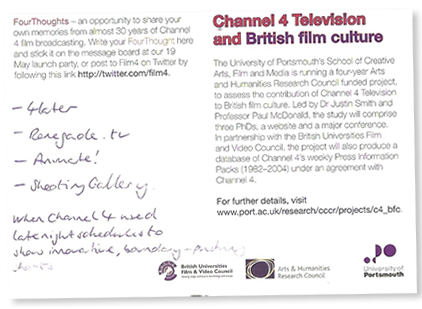 FourThoughts – an opportunity to share your
own memories from almost 30 years of Channel
4 film broadcasting. Write your FourThought here
and stick it on the message board at our 19
May launch party, or post to Film4 on Twitter by
following this link http://twitter.com/film4.
– 4Later
– Renegade.tv
– Animate!
– Shooting Gallery.
When Channel 4 used
late night schedules to
show innovative, boundary-pushing
Channel 4 Television
and British film culture
The University of Portsmouth's School of Creative
Arts, Film and Media is running a four-year Arts
and Humanities Research Council funded project,
to assess the contribution of Channel 4 Television
to British film culture. Led by Dr Justin Smith and
Professor Paul McDonald, the study will comprise
three PhDs, a website and a major conference.
In partnership with the British Universities Film
and Video Council, the project will also produce a
database of Channel 4's weekly Press Information
Packs (1982–2004) under an agreement with
Channel 4.
For further details, visit
www.port.ac.uk/research/cccr/projects/c4_bfc.
British Universities
Film & Video Council
Arts & Humanities
Research Council
University of
Portsmouth